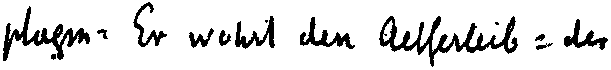 plasm = Er wohnt den Aetherleib = der